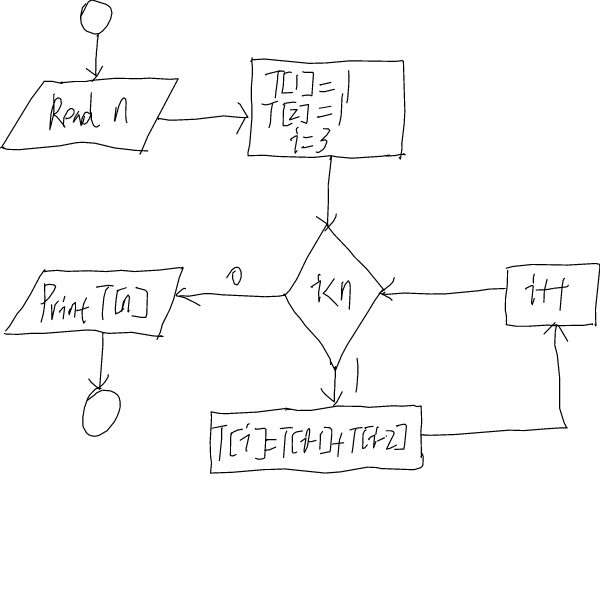 Read n
T[1]=1
T[2]=1
i=3
i<n
0
Print T[n]
i++
1
T[i]=T[i-1]+T[i-2]